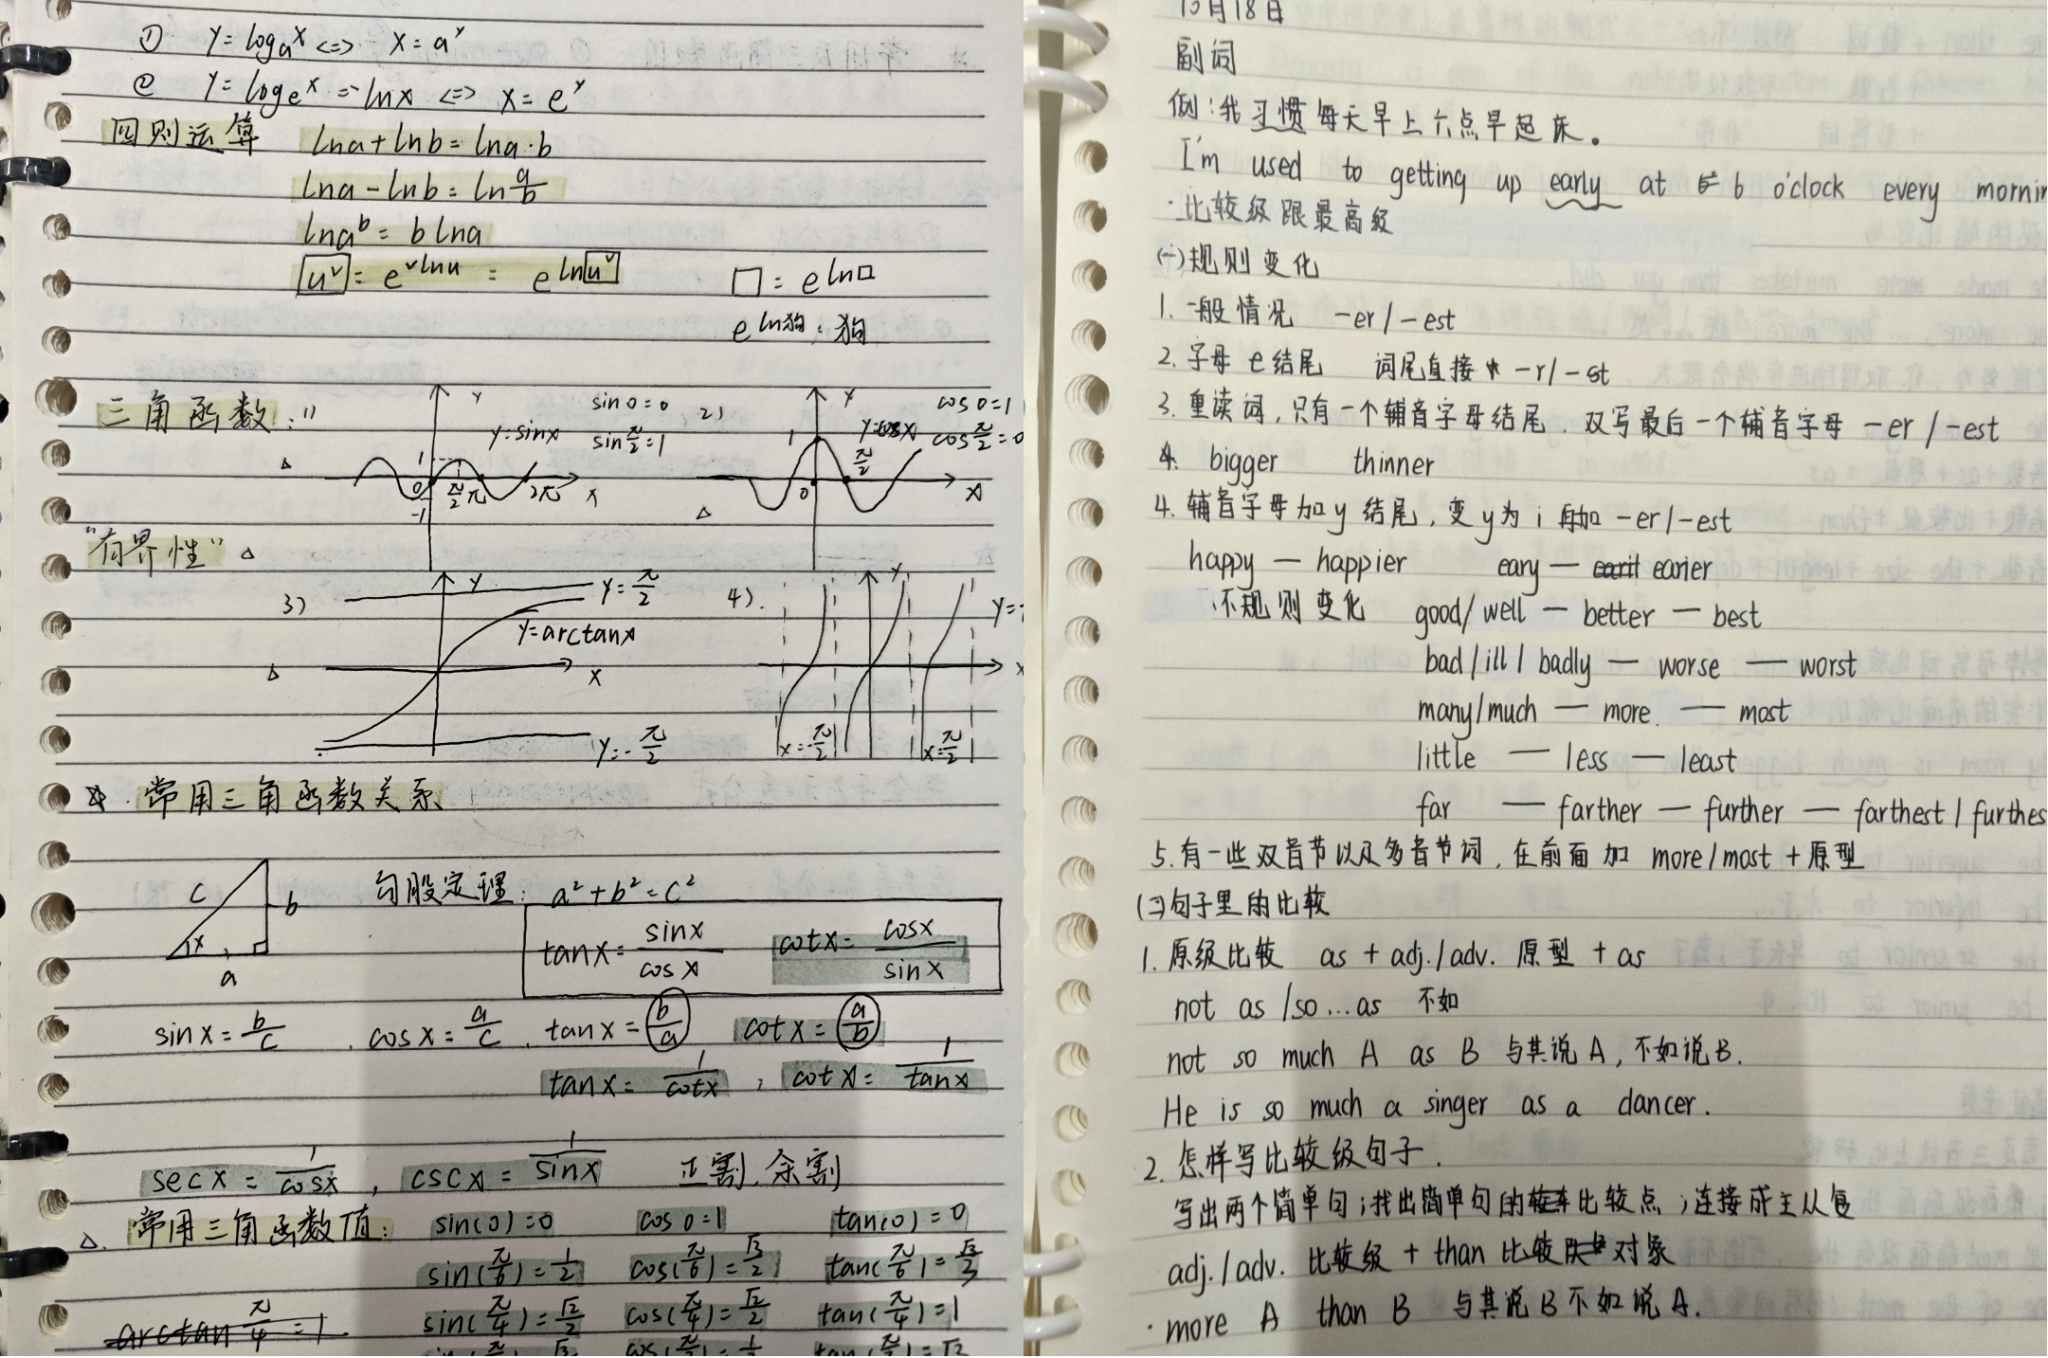 ① y=logₐx <=> x=aʸ
② y=logₑx=lnx <=> x=eʸ
四则运算 lna+lnb=lna·b
lna-lnb=ln a/b
lnaᵇ=blna
uᵛ=eᵛˡⁿᵘ=e ln uᵛ □=e ln□
e ln狗=狗
三角函数:1) y y=sinx sin0=0 sin π/2=1 1 0 π/2 π 2π x -1
2) y y=cosx cos0=1 cos π/2=0 1 0 π/2 x
"有界性"
3) y y=π/2 y=arctanx x y=-π/2
4). y y= x x=-π/2 x=π/2
常用三角函数关系
c b x a
勾股定理: a²+b²=c²
tanx=sinx/cosx cotx=cosx/sinx
sinx=b/c , cosx=a/c , tanx=b/a cotx=a/b
tanx=1/cotx , cotx=1/tanx
secx=1/cosx , cscx=1/sinx 正割,余割
常用三角函数值: sin(0)=0 cos0=1 tan(0)=0
sin(π/6)=1/2 cos(π/6)=√3/2 tan(π/6)=√3/3
arctan π/4=1 sin(π/4)=√2/2 cos(π/4)=√2/2 tan(π/4)=1
月18日
副词
例:我习惯每天早上六点早起床。
I'm used to getting up early at 6 o'clock every mornin
·比较级跟最高级
(一)规则变化
1. 一般情况 -er/-est
2. 字母e结尾 词尾直接 -r/-st
3. 重读词,只有一个辅音字母结尾,双写最后一个辅音字母 -er/-est
bigger thinner
4. 辅音字母加y结尾,变y为i再加-er/-est
happy — happier eary — earier
不规则变化 good/well — better — best
bad/ill/badly — worse — worst
many/much — more — most
little — less — least
far — farther — further — farthest/furthes
5. 有一些双音节以及多音节词,在前面加 more/most+原型
(二)句子里的比较
1. 原级比较 as + adj./adv. 原型 + as
not as/so...as 不如
not so much A as B 与其说A,不如说B.
He is so much a singer as a dancer.
2. 怎样写比较级句子.
写出两个简单句;找出简单句的比较点;连接成主从复
adj./adv. 比较级 + than 比较对象
·more A than B 与其说B不如说A.